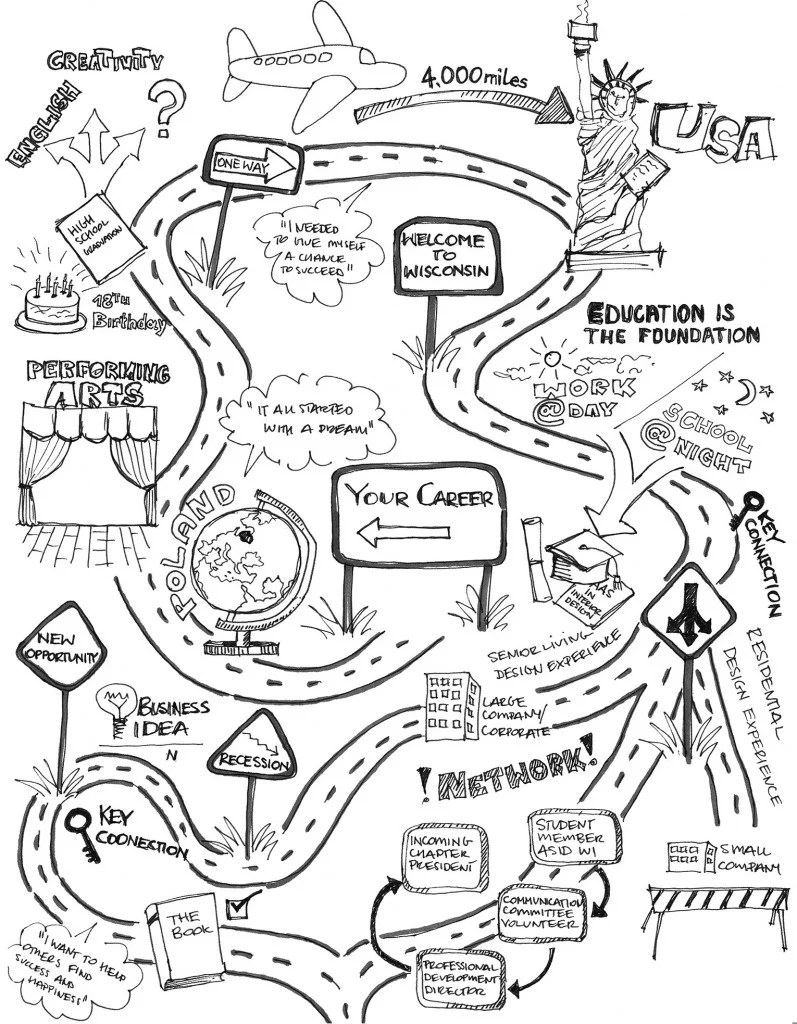 CREATIVITY
ENGLISH
?
4,000 miles
USA
ONE WAY
HIGH
SCHOOL
GRADUATION
"I NEEDED
TO GIVE MYSELF
A CHANCE
TO SUCCEED"
WELCOME
TO
WISCONSIN
18TH
Birthday
EDUCATION IS
THE FOUNDATION
PERFORMING
ARTS
WORK
@ DAY
SCHOOL
@ NIGHT
"IT ALL STARTED
WITH A DREAM"
POLAND
YOUR CAREER
KEY
CONNECTION
AAS
IN
INTERIOR
DESIGN
NEW
OPPORTUNITY
SENIOR LIVING
DESIGN EXPERIENCE
RESIDENTIAL
DESIGN EXPERIENCE
BUSINESS
IDEA
N
RECESSION
LARGE
COMPANY/
CORPORATE
!NETWORK!
KEY
COONECTION
INCOMING
CHAPTER
PRESIDENT
STUDENT
MEMBER
ASID WI
SMALL
COMPANY
COMMUNICATION
COMMITTEE
VOLUNTEER
THE
BOOK
"I WANT TO HELP
OTHERS FIND
SUCCESS AND
HAPPINESS"
PROFESSIONAL
DEVELOPMENT
DIRECTOR